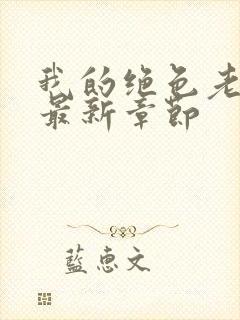 我的绝色老
最新章节
蓝惠文